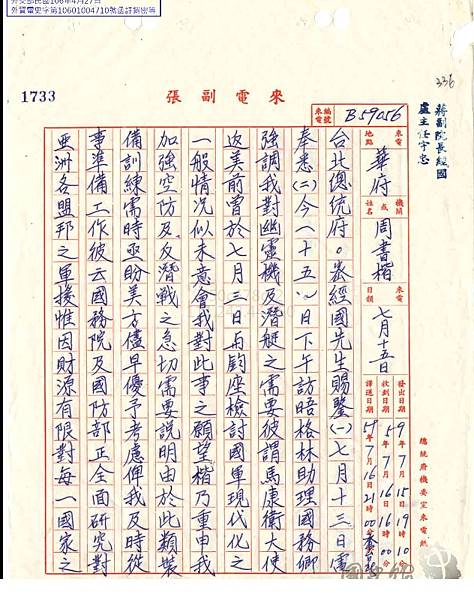 外交部民國106年4月27日
外資電史字第10601004710號函註銷密等
1733
來電副張
336
蔣副院長經國
盧主任守忠
來電編號
B59056
來電地點
華府
機關或姓名
周書楷
來電日期
七月十五日
發出日期
59年7月15日19時10分
收到日期
59年7月16日16時00分
譯送日期
59年7月16日21時00分
總統府機要室來電紙
台北總統府。密經國先生賜鑒(一)七月十三日電
奉悉(二)今(十五)日下午訪晤格林助理國務卿
強調我對幽靈機及潛艇之需要彼謂馬康衛大使
返美前曾於七月三日與鈞座檢討國軍現代化之
一般情況似未意會我對此事之願望楷乃重申我
加強空防及反潛戰之急切需要說明由於此類裝
備訓練需時亟盼美方儘早優予考慮俾我及時從
事準備工作彼云國務院及國防部正全面研究對
亞洲各盟邦之軍援惟因財源有限對每一國家之